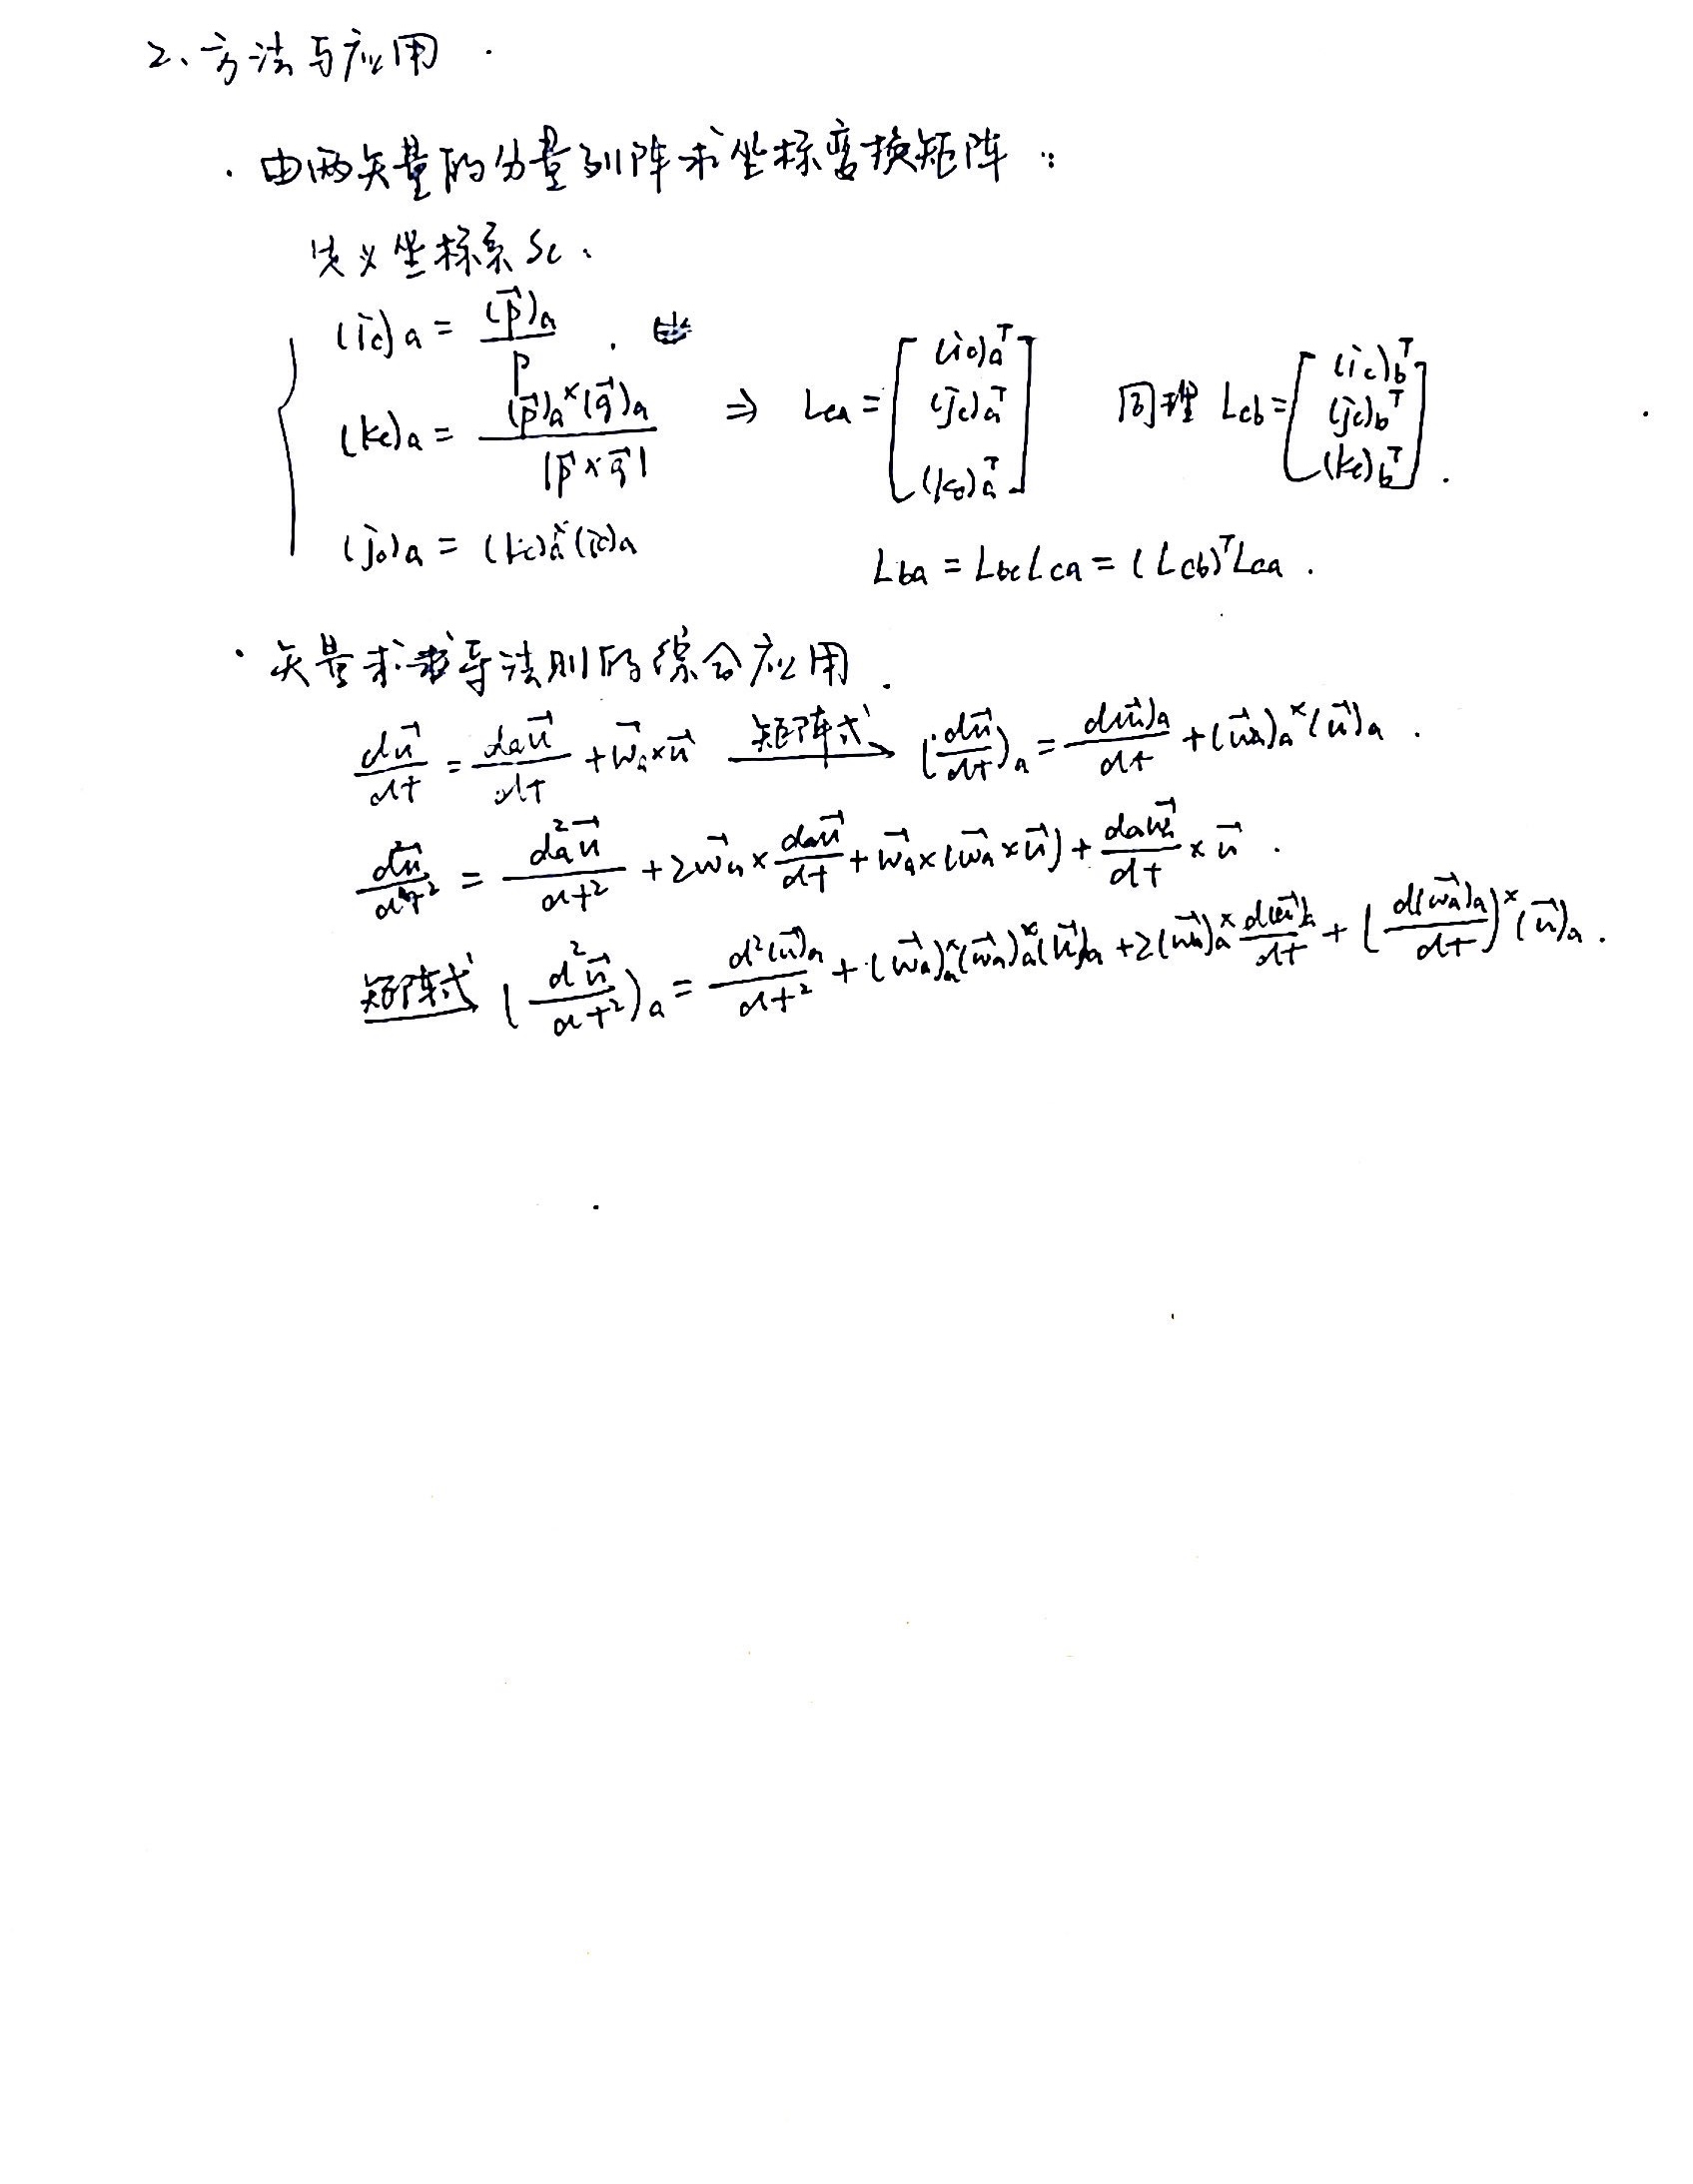 2、方法与应用
· 由两矢量的分量列阵求坐标变换矩阵：
定义坐标系Sc.
(ic)a = (p⃗)a / p
(kc)a = (p⃗)a^×(q⃗)a / |p⃗×q⃗| ⇒ Lca = [(ic)a^T (jc)a^T (kc)a^T] 同理 Lcb = [(ic)b^T (jc)b^T (kc)b^T].
(jc)a = (kc)a^×(ic)a
Lba = Lbc Lca = (Lcb)^T Lca.
· 矢量求导法则的综合应用.
du⃗/dt = da u⃗/dt + ω⃗a×u⃗ 矩阵式→ (du⃗/dt)a = d(u⃗)a/dt + (ω⃗a)a^×(u⃗)a.
d²u⃗/dt² = da²u⃗/dt² + 2ω⃗a×da u⃗/dt + ω⃗a×(ω⃗a×u⃗) + da ω⃗a/dt × u⃗.
矩阵式 (d²u⃗/dt²)a = d²(u⃗)a/dt² + (ω⃗a)a^×(ω⃗a)a^×(u⃗)a + 2(ω⃗a)a^× d(u⃗)a/dt + (d(ω⃗a)a/dt)^×(u⃗)a.